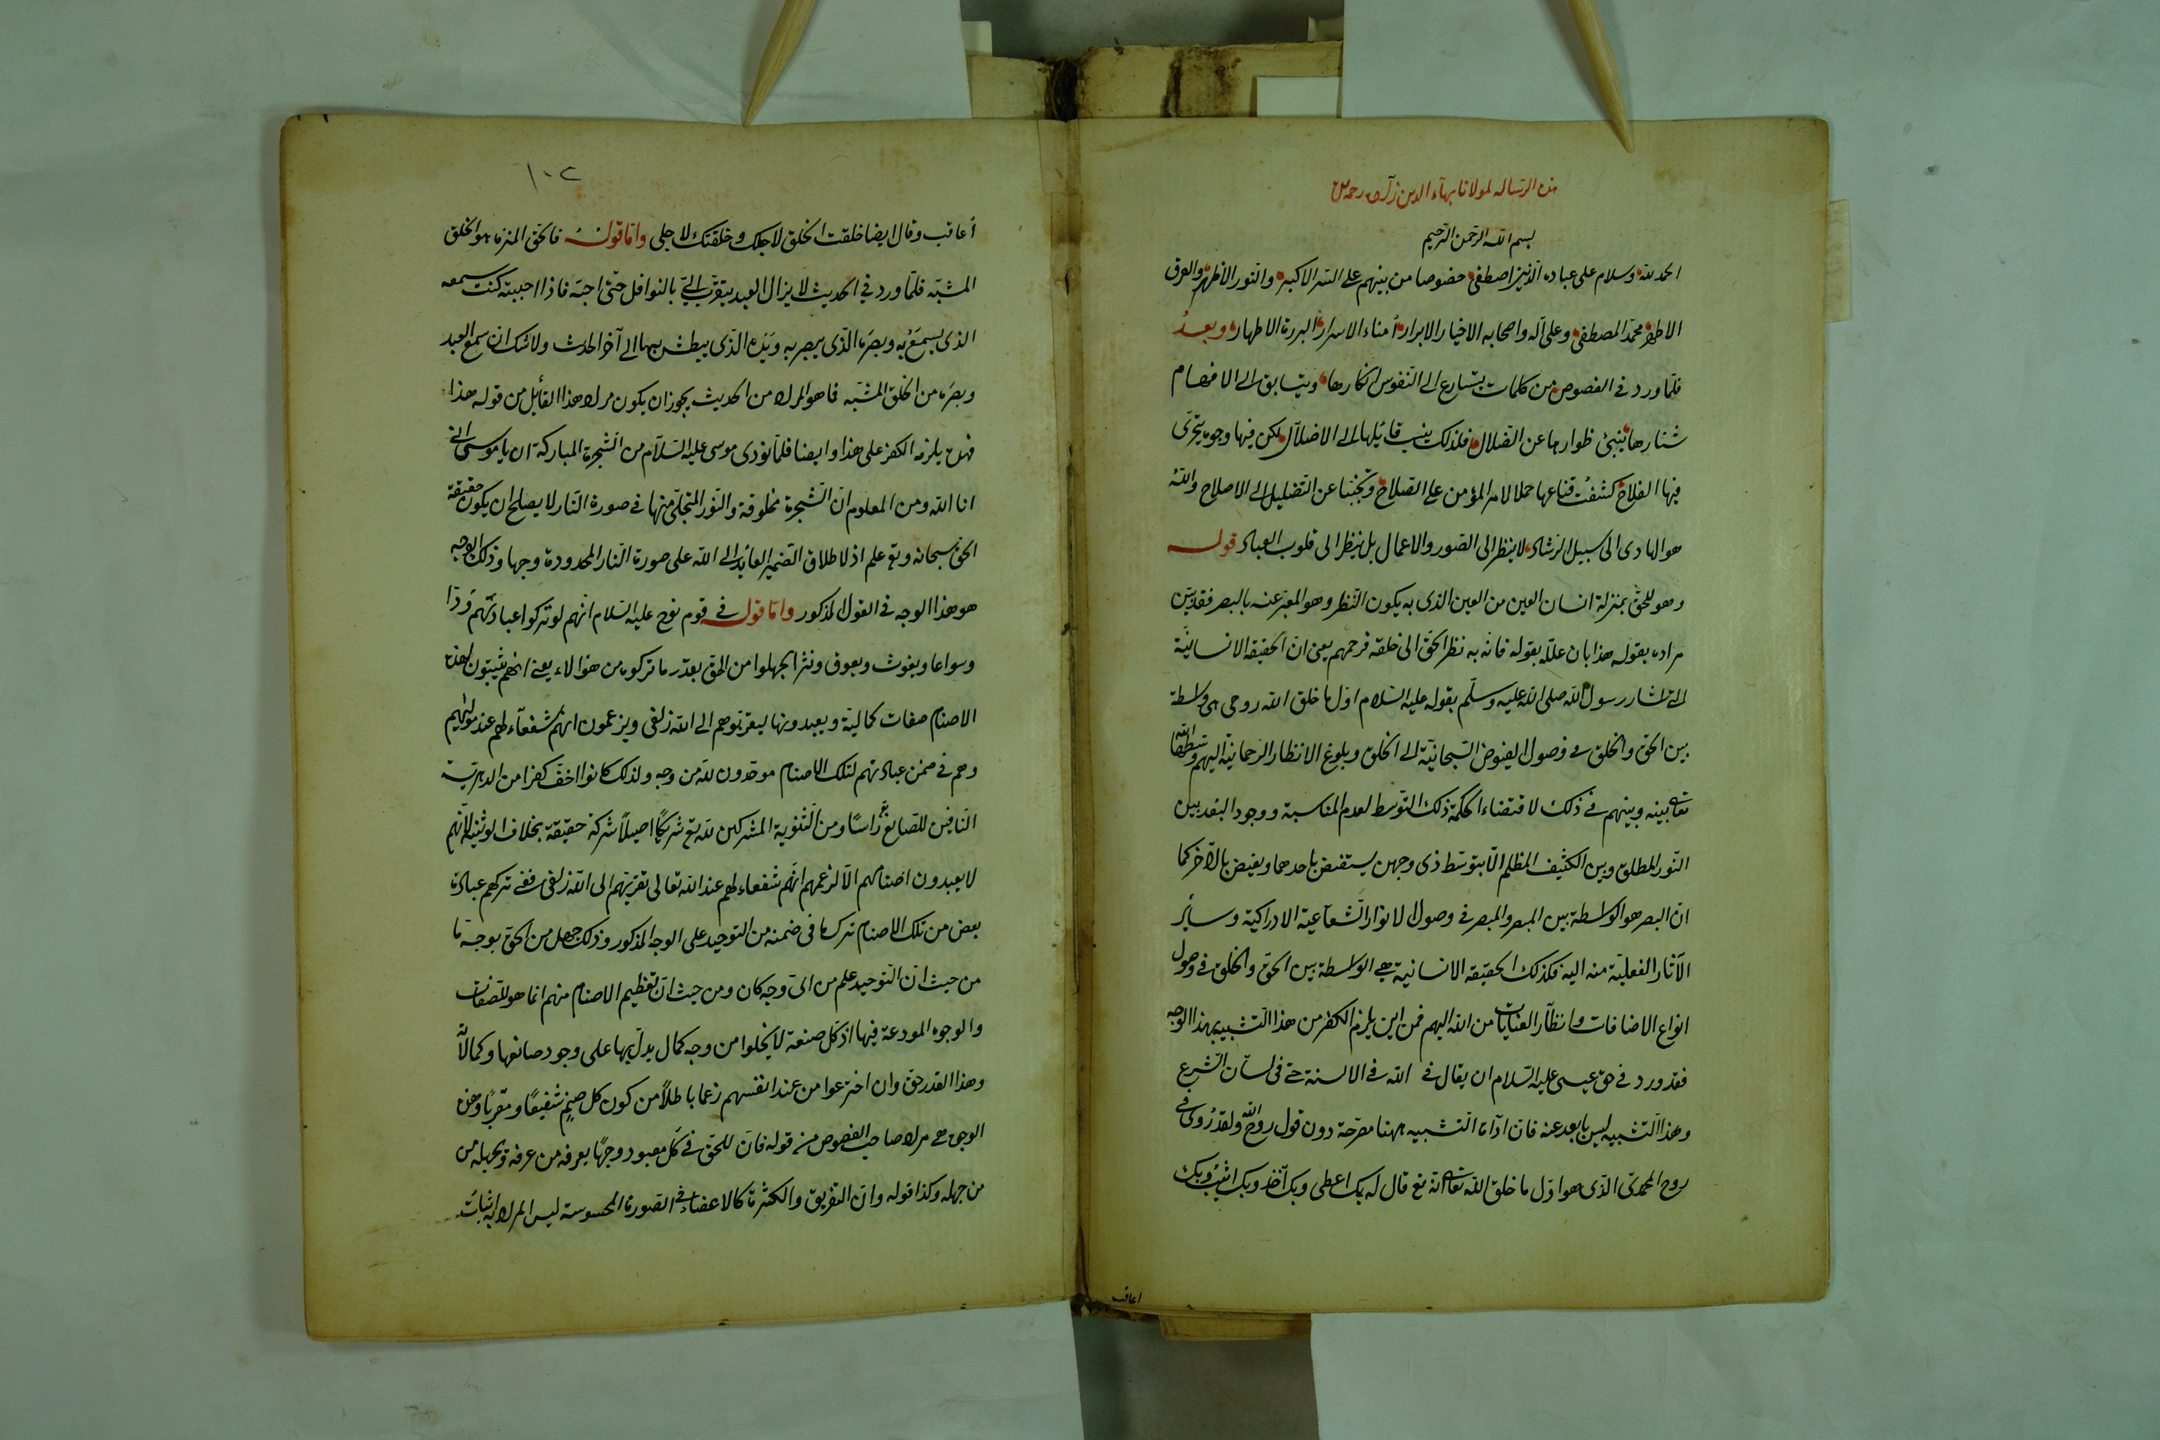 هذه الرسالة لمولانا بهاء الدين زاده رحمه
بسم الله الرحمن الرحيم
الحمد لله وسلام على عباده الذين اصطفى خصوصا من بينهم على السر الاكبر والنور الاظهر
الاطهر محمد المصطفى وعلى آله واصحابه الاخيار الابرار أمناء الاسرار البررة الاطهار وبعد
فلما ورد في الفصوص من كلمات يتسارع الى النفوس انكارها ويتسابق الى الافهام
شنارها ينبئ ظواهرها عن الضلال فلذلك ينسب قائلها الى الاضلال لكن فيها وجوه يتحرى
فيها الفلاح كشفت قناعها حملا لامر المؤمن على الصلاح وتجنبا عن التضليل الى الاصلاح والله
هو الهادى الى سبيل الرشاد لا ينظر الى الصور والاعمال بل ينظر الى قلوب العباد قوله
وهو للحق بمنزلة انسان العين من العين الذى به يكون النظر وهو المعبر عنه بالبصر فقد بين
مراده بقوله هذا بان علله بقوله فانه به نظر الحق الى خلقه فرحمهم يعنى ان الحقيقة الانسانية
التى اشار رسول الله صلى الله عليه وسلم بقوله عليه السلام اول ما خلق الله روحى هى واسطة
بين الحق والخلق فى وصول الفيوض السبحانية الى الخلق وبلوغ الانظار الرحمانية اليهم
تعالى بينه وبينهم فى ذلك لاقتضاء الحكمة ذلك التوسط لعدم المناسبة ووجود البعد بين
النور المطلق وبين الكثيف المظلم الا بتوسط ذى وجهين يستفيض باحدهما ويفيض بالآخر كما
ان البصر هو الواسطة بين المبصر والمبصر فى وصول الانوار الشعاعية الادراكية وسائر
الآثار الفعلية منه اليه فكذلك الحقيقة الانسانية هى الواسطة بين الحق والخلق فى وصول
انواع الاضافات وانظار العنايات من الله اليهم فمن اين يلزم الكفر من هذا التشبيه بهذا الوجه
فقد ورد فى حق عيسى عليه السلام ان يقال فى الله فى الالسنة حتى فى لسان الشرع
وهذا التشبيه ليس بابعد عنه فان اداة التشبيه ههنا مصرحة دون قول روح الله ولقد روى فى
روح المحمدى الذى هو اول ما خلق الله تعالى انه تع قال له بك اعطى وبك آخذ وبك اثيب وبك
اعاقب
١٠٢
أعاقب وقال ايضا خلقت الخلق لاجلك وخلقتك لاجلى واما قوله فالحق المنزه هو الخلق
المشبه فلما ورد فى الحديث لا يزال العبد يتقرب الى بالنوافل حتى احبه فاذا احببته كنت سمعه
الذى يسمع به وبصره الذى يبصر به ويده الذى يبطش بها الى آخر الحديث ولا شك ان سمع العبد
وبصره من الخلق المشبه فما هو المراد من الحديث يجوز ان يكون مراد هذا القائل من قوله هذا
يلزم الكفر على هذا وايضا فلما نودى موسى عليه السلام من الشجرة المباركة ان يا موسى انى
انا الله ومن المعلوم ان الشجرة مخلوقة والنور المتجلى منها فى صورة النار لا يصلح ان يكون حقيقة
الحق سبحانه وتع علم اذ لاطلاق الضمير العائد الى الله على صورة النار المحدودة وجها وذلك الوجه
هو هذا الوجه فى القول المذكور واما قوله فى قوم نوح عليه السلام انهم لو تركوا عبادتهم ودا
وسواعا ويغوث ويعوق ونسرا لجهلوا من الحق بقدر ما تركوه من هؤلاء يعنى انهم يثبتون لهذه
الاصنام صفات كمالية ويعبدونها ليقربوهم الى الله زلفى ويزعمون انهم شفعاء لهم عند مولاهم
وهم فى ضمن عبادتهم لتلك الاصنام موحدون لله من وجه ولذلك كانوا اخف كفرا من الدهرية
النافين للصانع رأسا ومن الثنوية المشركين لله تع شريكا اصيلا شركة حقيقة بخلاف الوثنية لانهم
لا يعبدون اصنامهم الا لزعمهم انهم شفعاء لهم عند الله تعالى تقربهم الى الله زلفى ففى تركهم عبادة
بعض من تلك الاصنام ترك ما فى ضمنه من التوحيد على الوجه المذكور وذلك جهل من الحق بوجه ما
من حيث ان التوحيد علم من اى وجه كان ومن حيث ان تعظيم الاصنام منهم انما هو للصفات
والوجوه المودعة فيها اذ كل صنعة لا يخلوا من وجه كمال يدل بها على وجود صانعها وكمالاته
وهذا القدر حق وان اخترعوا من عند انفسهم زعما باطلا من كون كل صنم شفيعا ومقربا وهذه
الوجوه هى مراد صاحب الفصوص من قوله فان للحق فى كل معبود وجها يعرفه من عرفه ويجهله من
من جهله وكذا قوله وان التفريق والكثرة كالاعضاء فى الصورة المحسوسة ليس المراد به اثبات